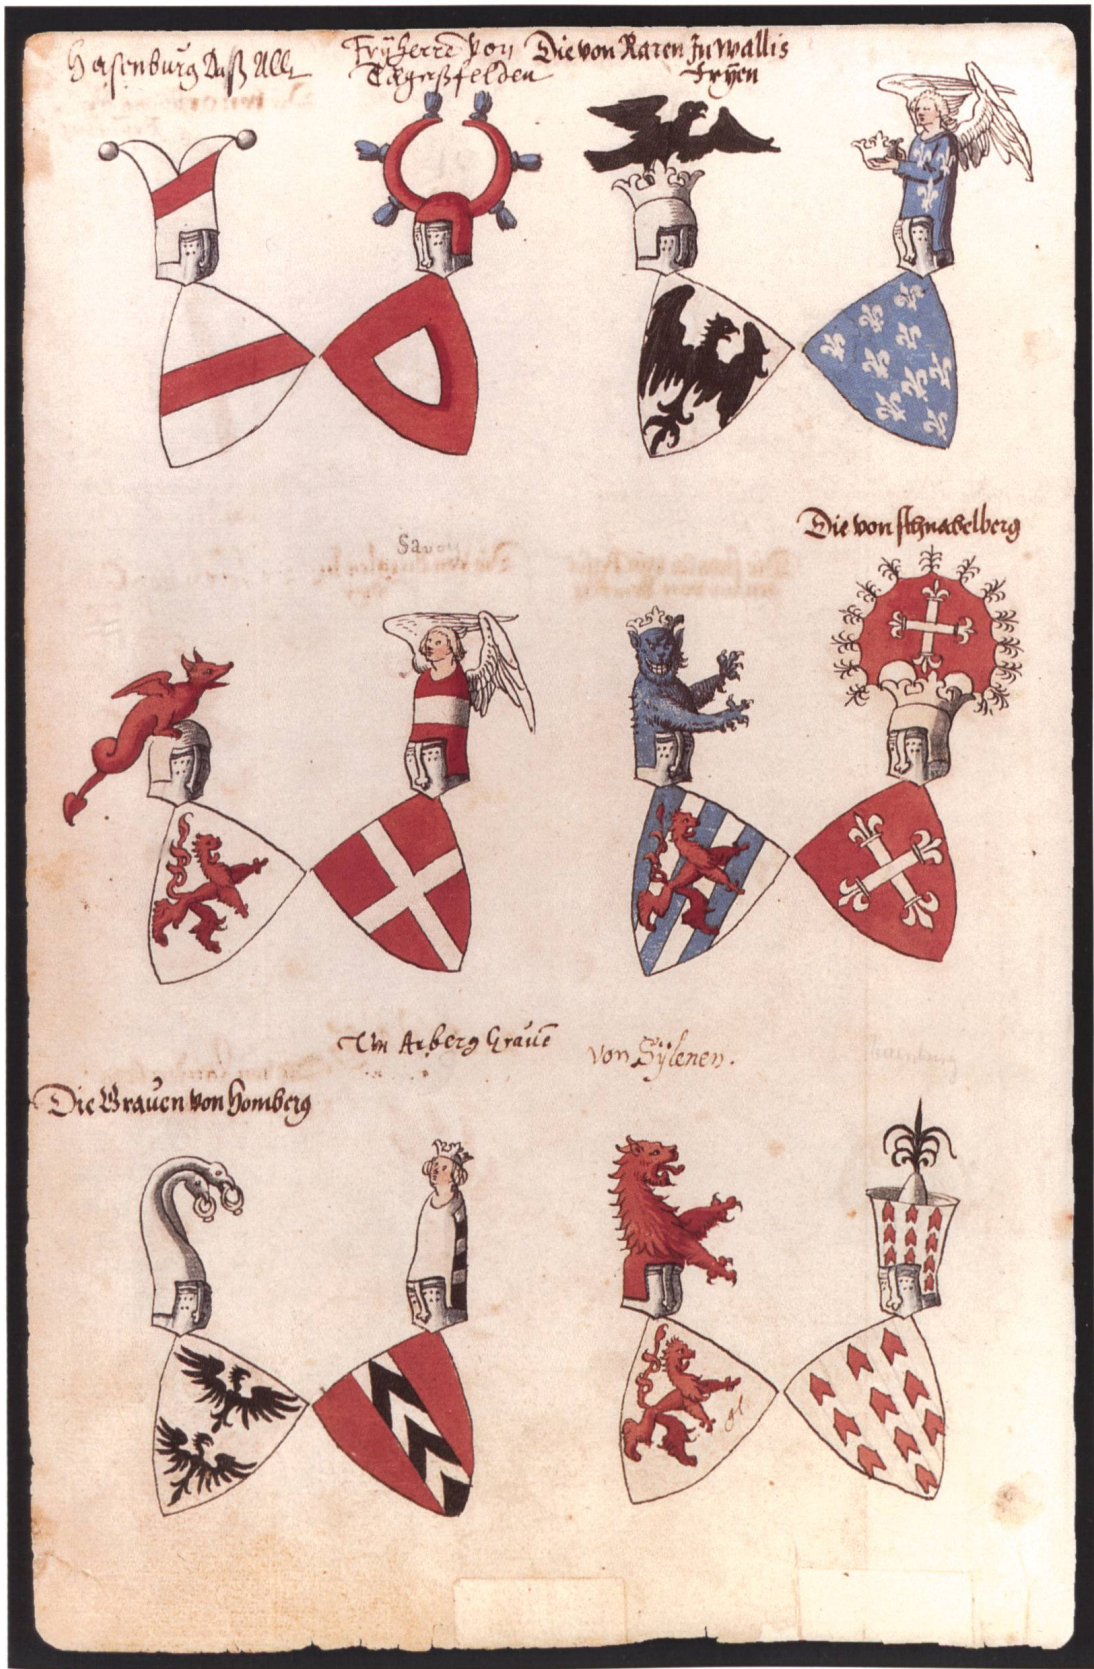 Hasenburg Auß All
Frÿherrē von
Tägerßfelden
Die von Raren Jn wallis
Frÿen
Savoy
Die von schnabelberg
Vm Arberg Graūē
von Sÿlenen.
Die Graūen von Homberg